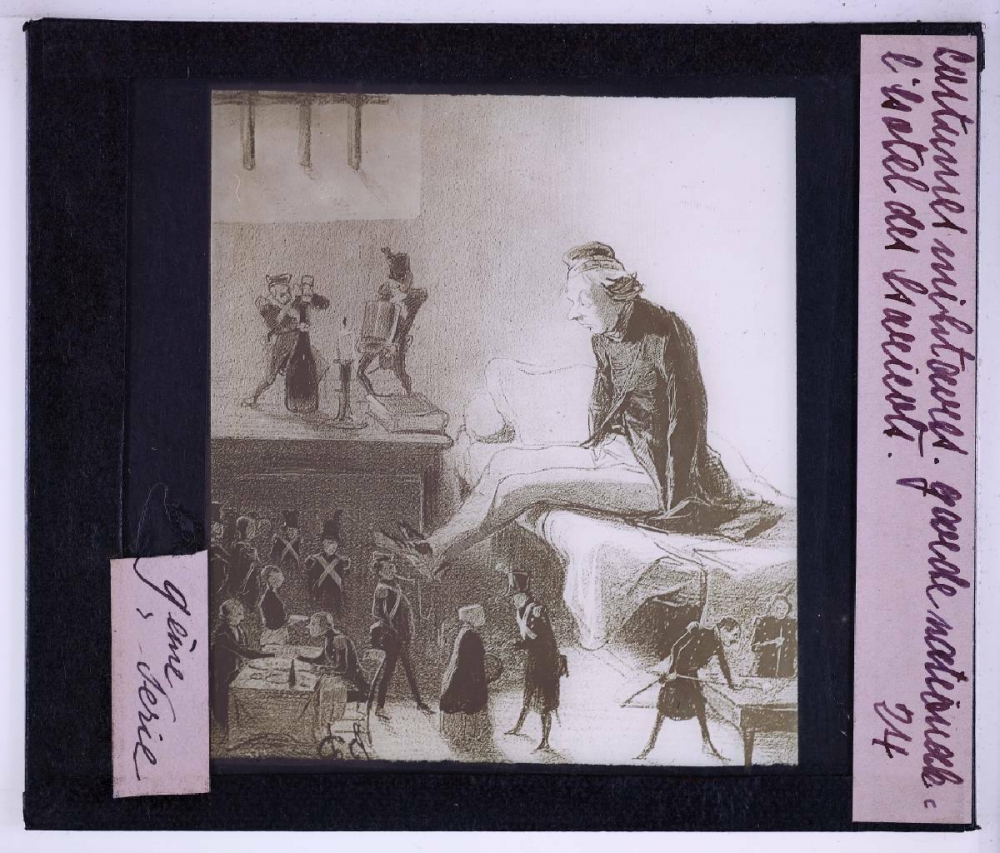 Costumes militaires. garde nationale.
l'hotel des haricots.
24
9ème série